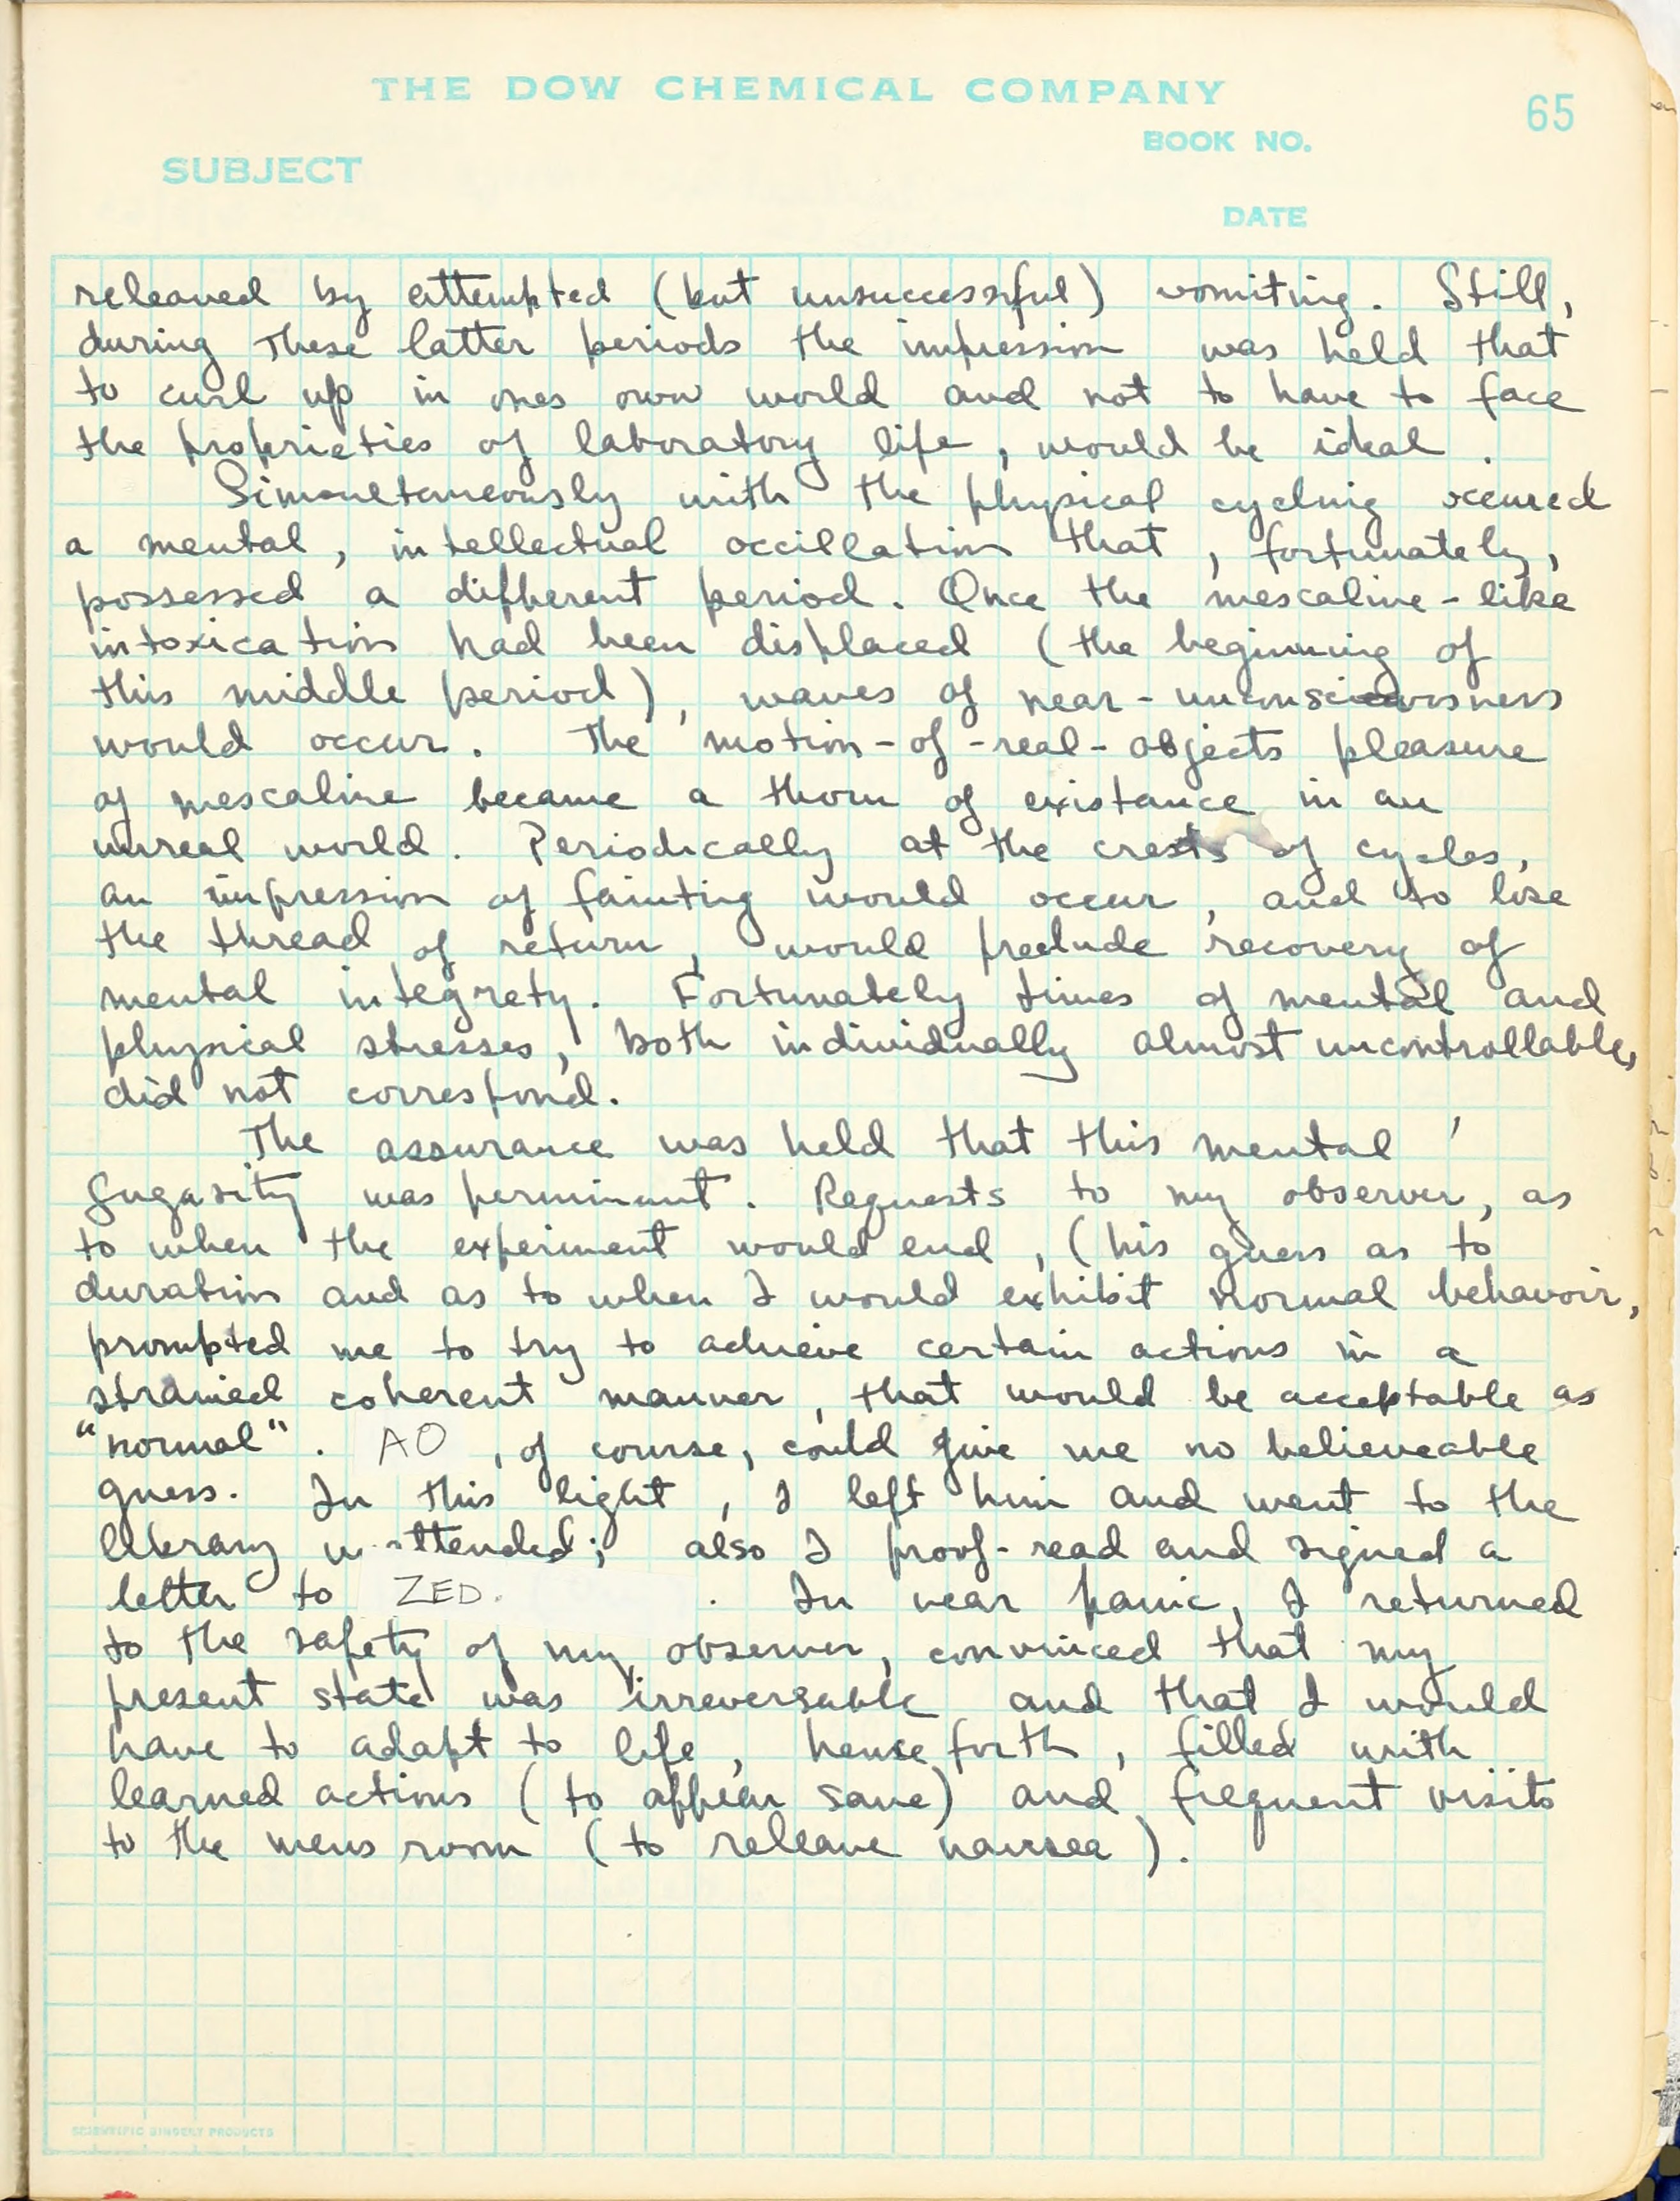 THE DOW CHEMICAL COMPANY
65
BOOK NO.
SUBJECT
DATE
releaved by attempted (but unsuccessful) vomiting. Still,
during these latter periods the impression was held that
to curl up in ones own world and not to have to face
the proprieties of laboratory life, would be ideal.
Simoultaneously with the physical cycling occured
a mental, intellectual occillation that, fortunately,
possessed a different period. Once the mescaline-like
intoxication had been displaced (the beginning of
this middle period), waves of near-unconsciousness
would occur. The motion-of-real-objects pleasure
of mescaline became a thorn of existance in an
unreal world. Periodically at the crests of cycles,
an impression of fainting would occur, and to lose
the thread of return, would preclude recovery of
mental integrety. Fortunately times of mental and
physical stresses, both individually almost uncontrollable,
did not correspond.
The assurance was held that this mental
fugasity was perminant. Requests to my observer, as
to when the experiment would end, (his guess as to
duration and as to when I would exhibit normal behavoir,
prompted me to try to achieve certain actions in a
strained coherent manner, that would be acceptable as
"normal". AO, of course, could give me no believeable
guess. In this light, I left him and went to the
library unattended; also I proof-read and signed a
letter to ZED. . In near panic, I returned
to the safety of my observer, convinced that my
present state was irreversable and that I would
have to adapt to life, hense forth, filled with
learned actions (to appear sane) and frequent visits
to the mens room (to releave nausea).
SCIENTIFIC BINDERY PRODUCTS